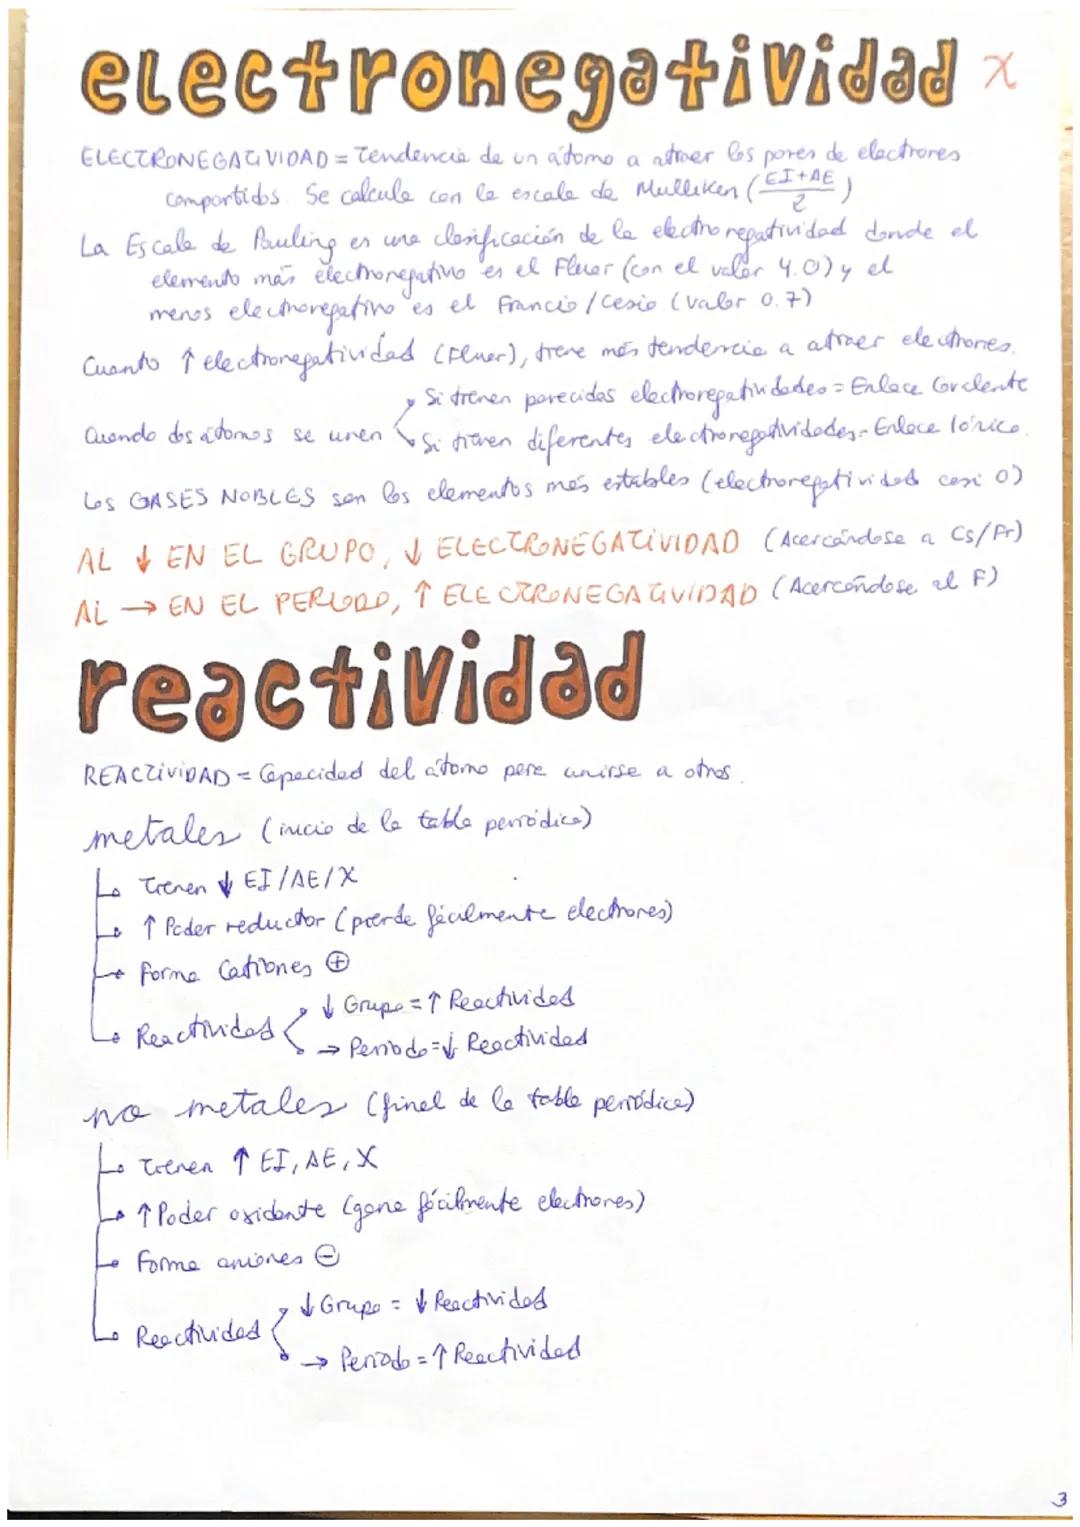 electronegatividad χ
ELECTRONEGATIVIDAD = Tendencia de un átomo a atraer los pares de electrones
compartidos. Se calcula con la escala de Mulliken (EI+AE/2)
La Escala de Pauling es una clasificación de la electronegatividad donde el
elemento más electronegativo es el Fluor (con el valor 4.0) y el
menos electronegativo es el Francio/Cesio (valor 0.7)
Cuanto ↑ electronegatividad (Fluor), tiene más tendencia a atraer electrones.
Cuando dos átomos se unen
Si tienen parecidas electronegatividades = Enlace Covalente
Si tienen diferentes electronegatividades = Enlace Iónico.
Los GASES NOBLES son los elementos más estables (electronegatividad casi 0)
AL ↓ EN EL GRUPO, ↓ ELECTRONEGATIVIDAD (Acercándose a Cs/Fr)
AL → EN EL PERIODO, ↑ ELECTRONEGATIVIDAD (Acercándose al F)
reactividad
REACTIVIDAD = Capacidad del átomo para unirse a otros.
metales (inicio de la tabla periódica)
Tienen ↓ EI/AE/χ
↑ Poder reductor (pierde fácilmente electrones)
Forma Cationes ⊕
Reactividad
↓ Grupo = ↑ Reactividad
→ Periodo = ↓ Reactividad
no metales (final de la tabla periódica)
Tienen ↑ EI, AE, χ
↑ Poder oxidante (gana fácilmente electrones)
Forma aniones ⊖
Reactividad
↓ Grupo = ↓ Reactividad
→ Periodo = ↑ Reactividad
3